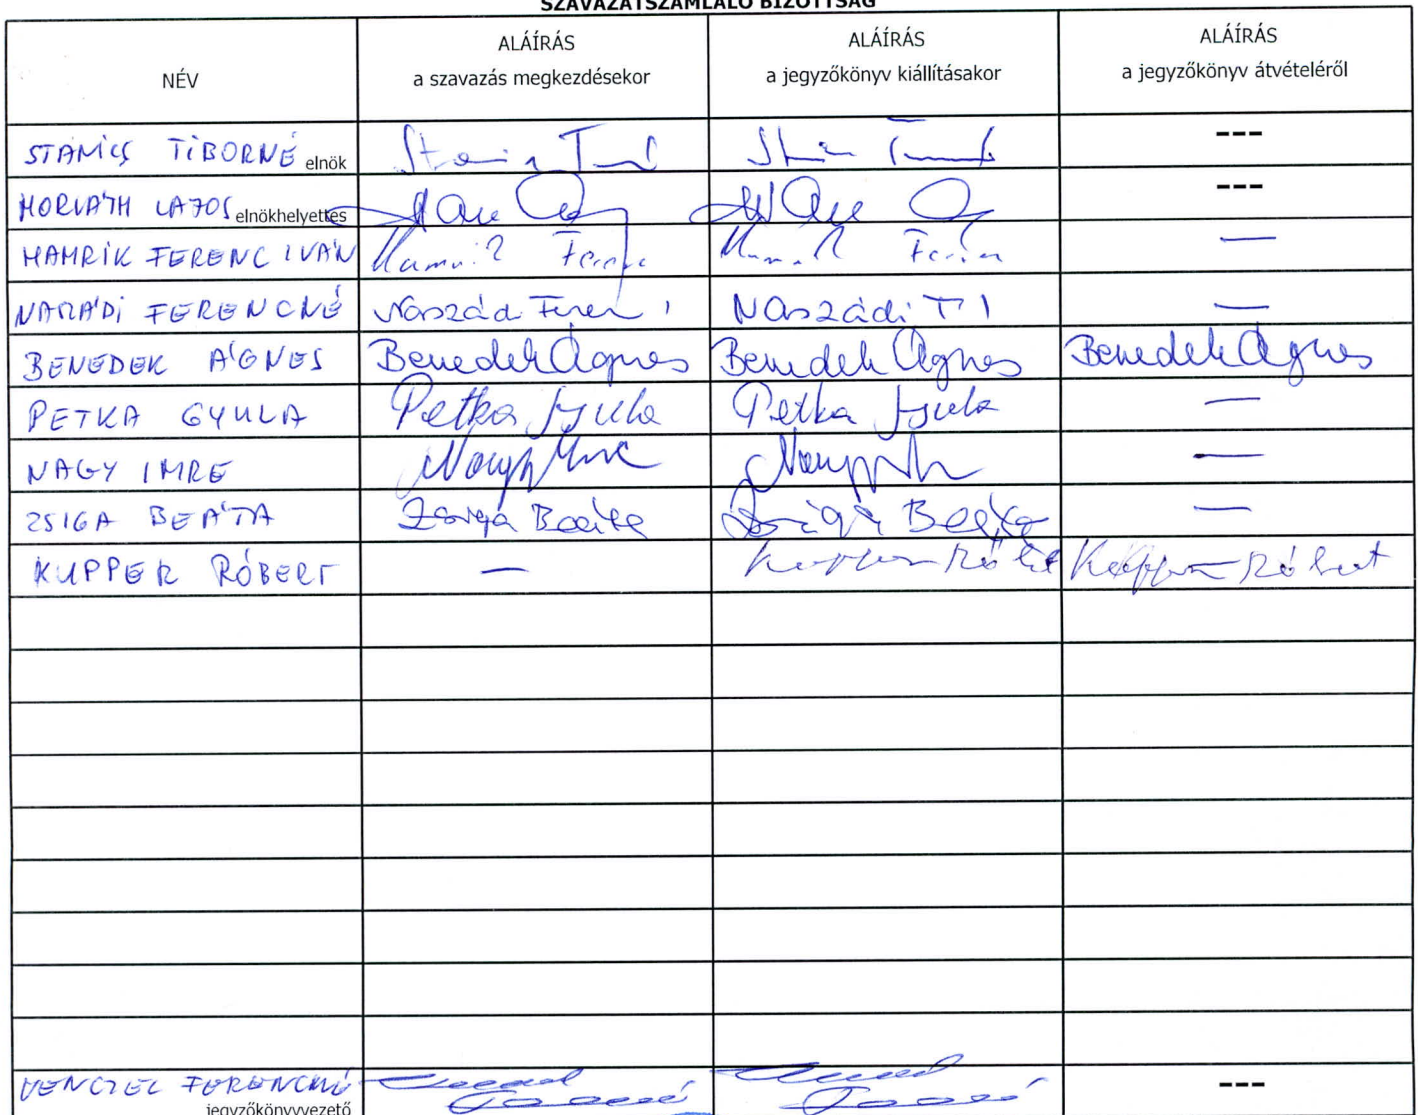 SZAVAZATSZÁMLÁLÓ BIZOTTSÁG
NÉV
ALÁÍRÁS
a szavazás megkezdésekor
ALÁÍRÁS
a jegyzőkönyv kiállításakor
ALÁÍRÁS
a jegyzőkönyv átvételéről
STANICS TIBORNÉ elnök ---
HORVÁTH LAJOS elnökhelyettes ---
HAMRIK FERENC IVÁN —
FERENCNÉ Naszádi —
BENEDEK ÁGNES Benedek Ágnes Benedek Ágnes Benedek Ágnes
PETKA GYULA Petka Gyula Petka Gyula —
NAGY IMRE Nagy Imre —
ZSIGA BEÁTA Zsiga Beáta Zsiga Beáta —
KUPPER RÓBERT — Kupper Róbert Kupper Róbert
VENCZEL FERENCNÉ ---
jegyzőkönyvvezető